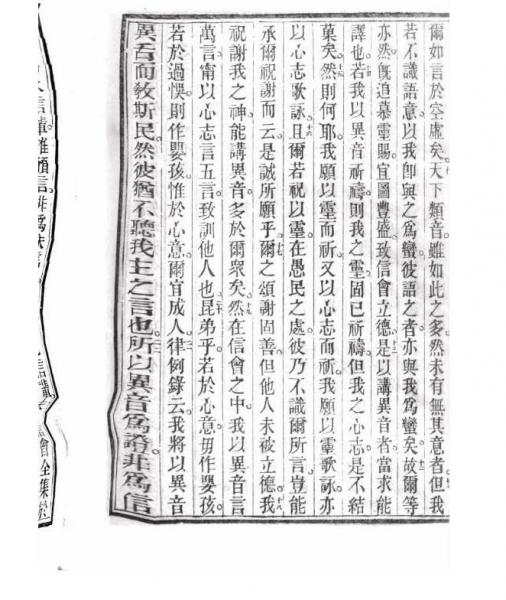 爾如言於空虛矣。天下類音。雖如此之多。然未有無其意者。但我
若不識語意。以我卽與之爲蠻。彼語之者。亦與我爲蠻矣。故爾等
亦然。旣追慕靈賜。宜圖豐盛。致信會立德。是以講異音者。當求能
譯也。若我以異音祈禱。則我之靈固已祈禱。但我之心志是不結
菓矣。然則何耶。我願以靈而祈。又以心志而祈。我願以靈歌詠。亦
以心志歌詠。且爾若祝以靈。在愚民之處。彼乃不識爾所言。豈能
承爾祝謝。而云是誠所願乎。爾之頌謝固善。但他人未被立德。我
祝謝我之神。能講異音。多於爾衆矣。然在信會之中。我以異音言
萬言。甯以心志言五言。致訓他人也。昆弟乎。若於心意。毋作嬰孩。
若於過愧則作嬰孩。惟於心意。爾宜成人。律例錄云。我將以異音
異舌而敎斯民。然彼猶不聽我。主之言也。所以異音爲證。非爲信
會全集